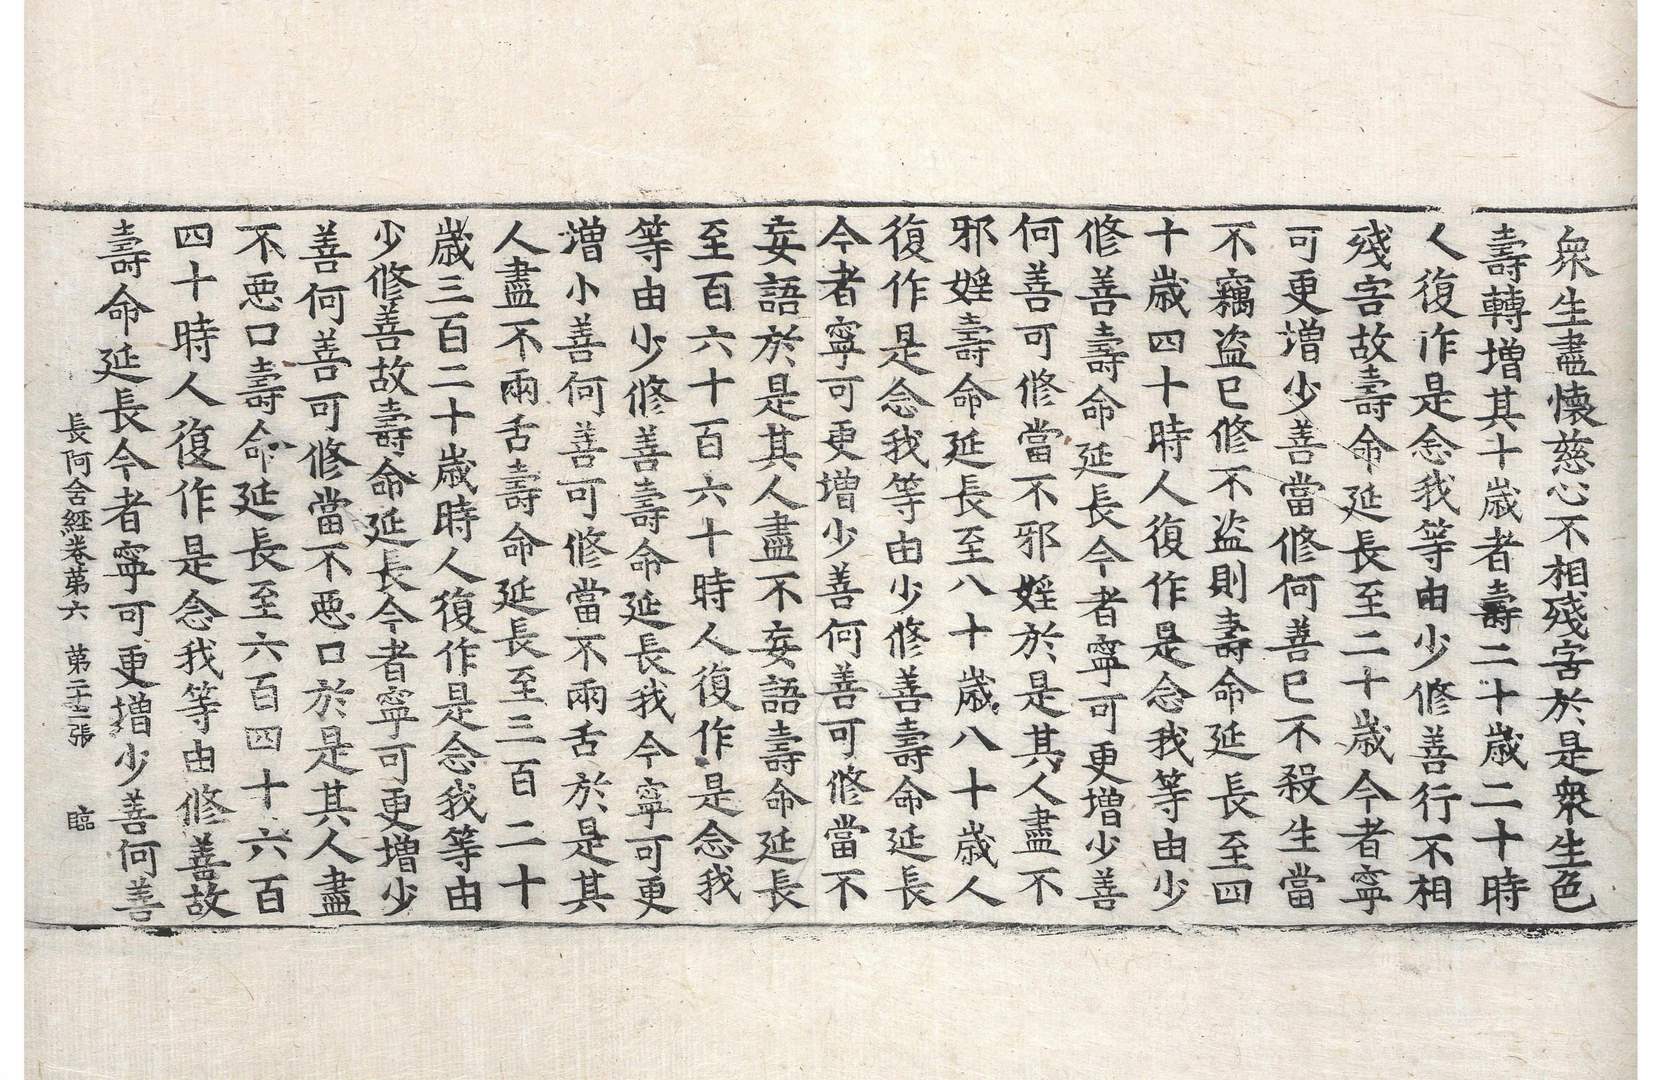 衆生盡懷慈心不相殘害於是衆生色
壽轉增其十歲者壽二十歲二十時
人復作是念我等由少修善行不相
殘害故壽命延長至二十歲今者寧
可更增少善當修何善已不殺生當
不竊盜已修不盜則壽命延長至四
十歲四十時人復作是念我等由少
修善壽命延長今者寧可更增少善
何善可修當不邪婬於是其人盡不
邪婬壽命延長至八十歲八十歲人
復作是念我等由少修善壽命延長
今者寧可更增少善何善可修當不
妄語於是其人盡不妄語壽命延長
至百六十百六十時人復作是念我
等由少修善壽命延長我今寧可更
增小善何善可修當不兩舌於是其
人盡不兩舌壽命延長至三百二十
歲三百二十歲時人復作是念我等由
少修善故壽命延長今者寧可更增少
善何善可修當不惡口於是其人盡
不惡口壽命延長至六百四十六百
四十時人復作是念我等由修善故
壽命延長今者寧可更增少善何善
長阿含經卷第六 第二十二張 臨